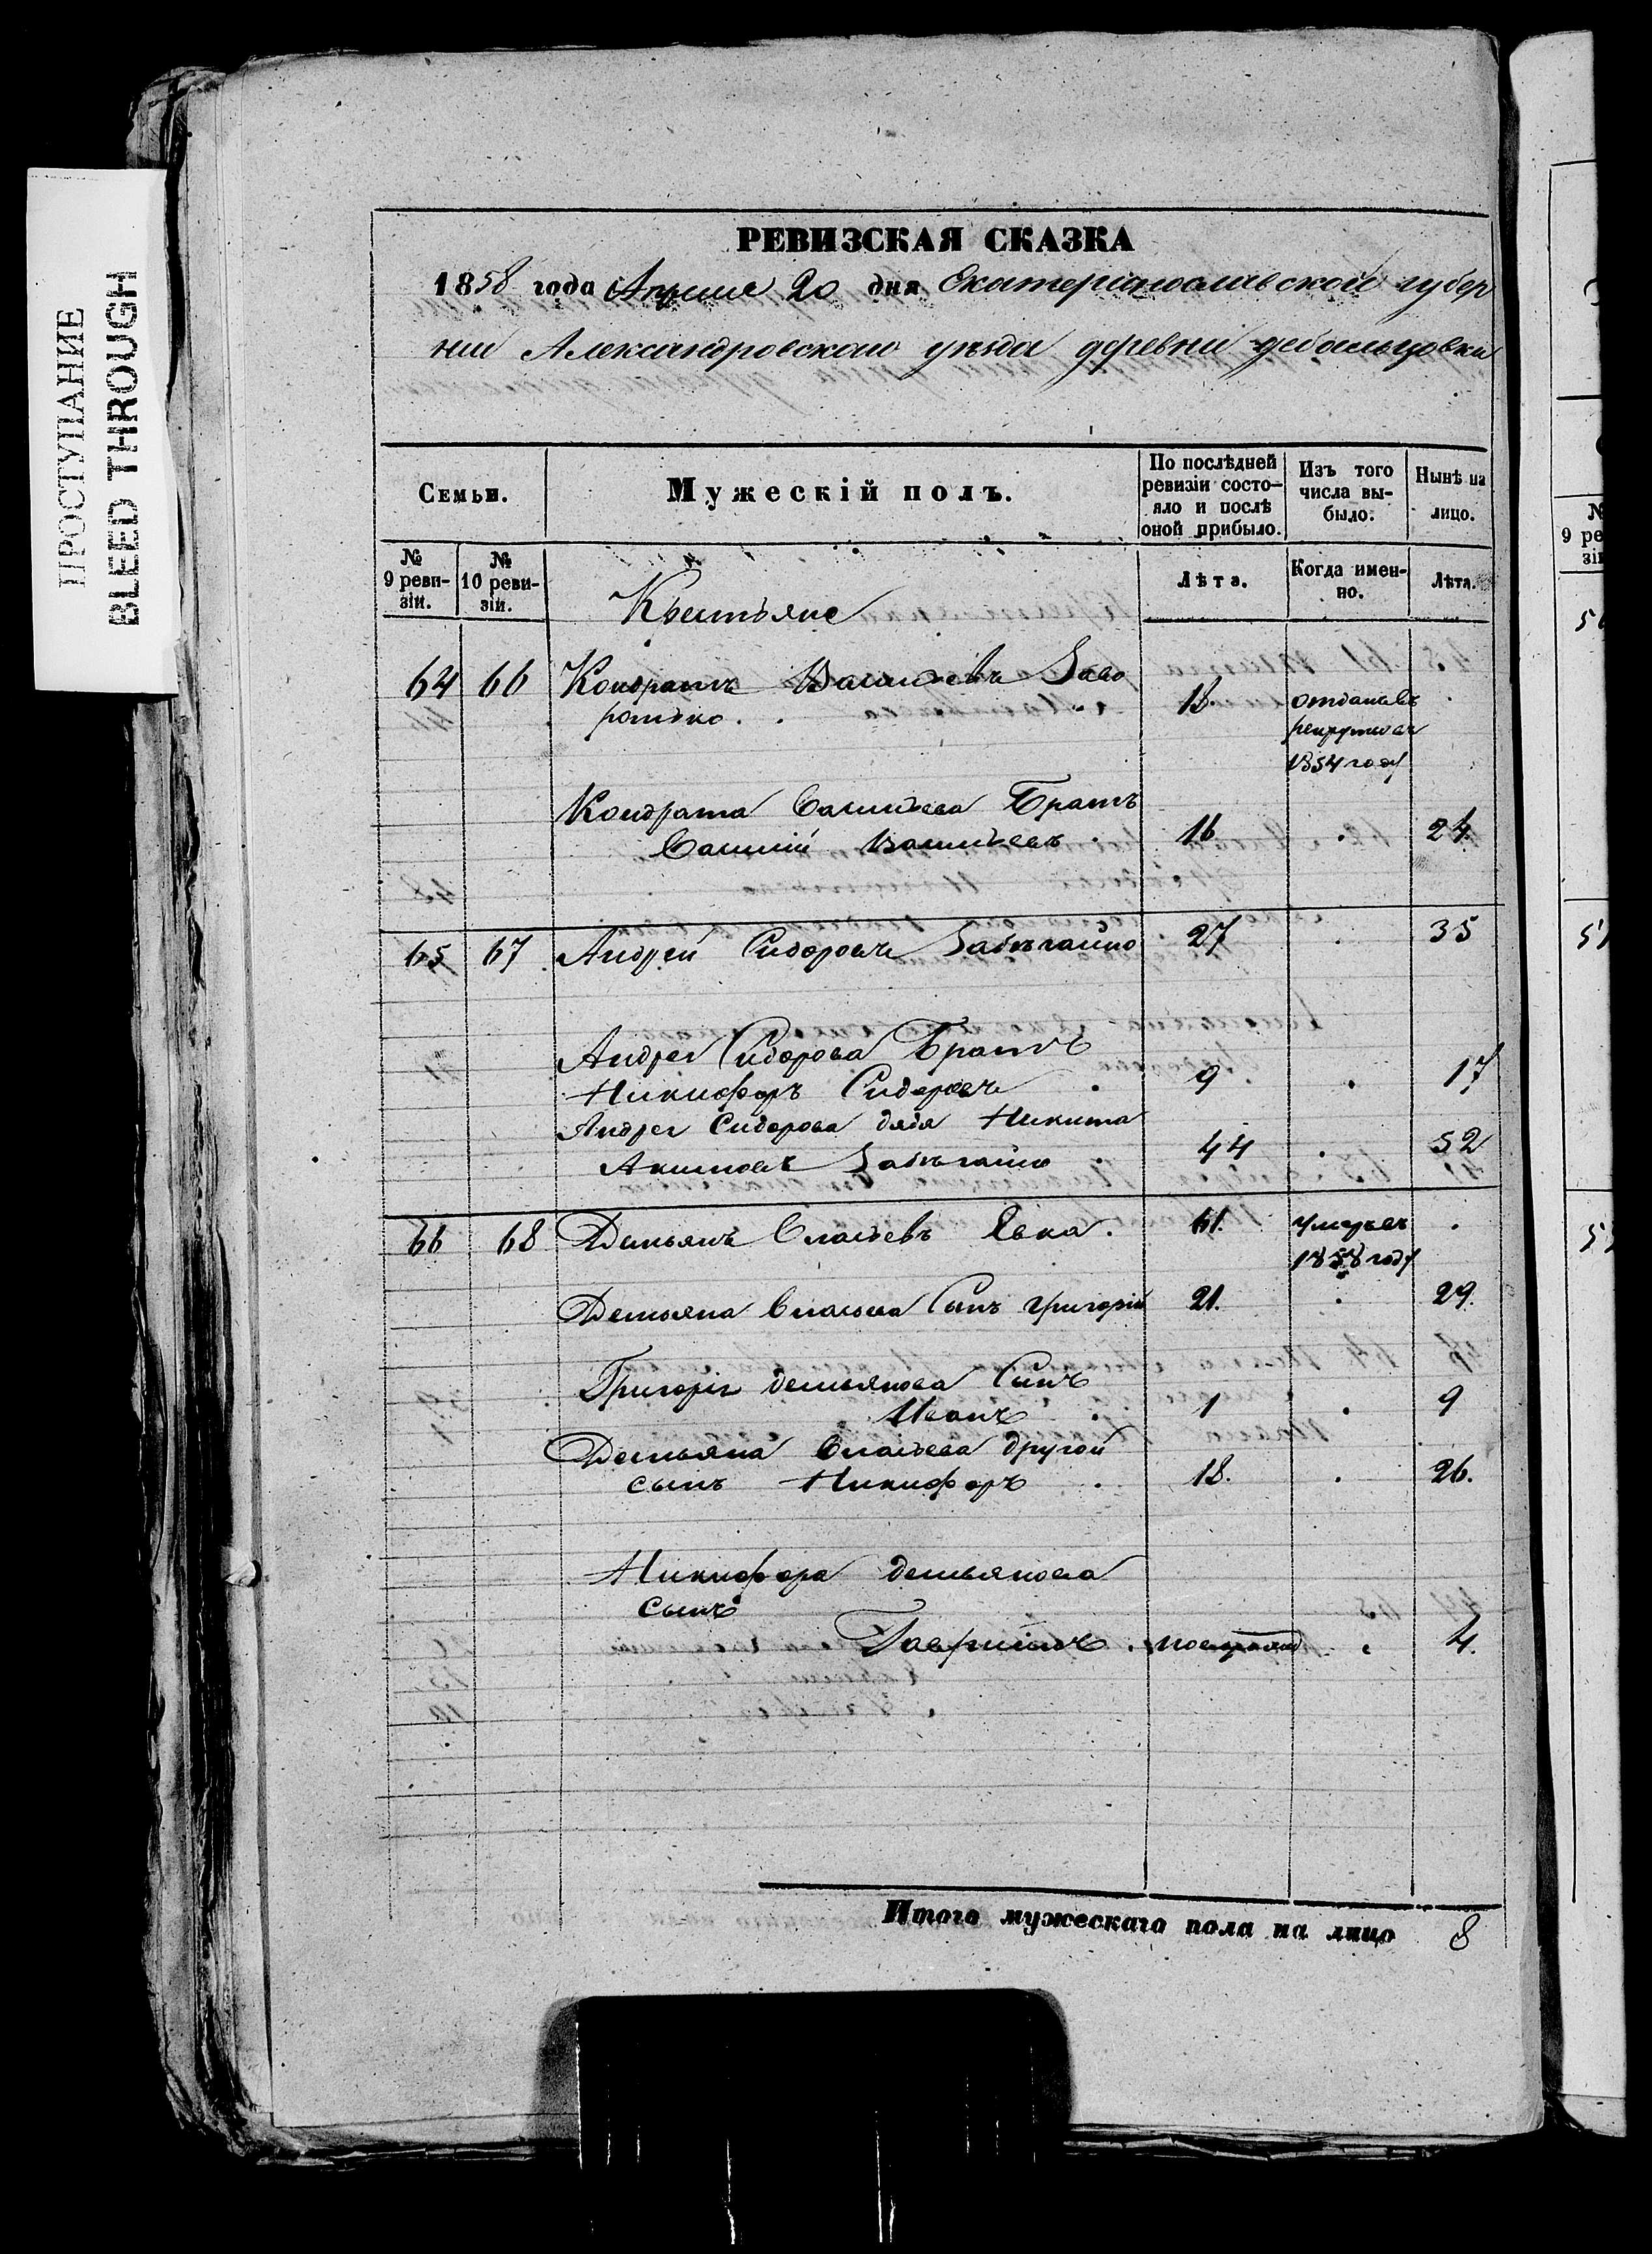 ПРОСТУПАНИЕ
BLEED THROUGH
РЕВИЗСКАЯ СКАЗКА
1858 года Апреля 20 дня Екатеринославской губер
нии Александровского уезда деревни дебальцовки
Семьи.
Мужескій полъ.
По послѣдней ревизіи состо-
яло и послѣ
оной прибыло.
Изъ того
числа вы-
было.
Нынѣ на
лицо.
№
9 реви-
зіи.
№
10 реви-
зіи.
Лѣта.
Когда имен-
но.
Лѣта.
Крестьяне
64 66 Кондратъ Васильевъ Заво
ротько. 18. отданъ въ
рекруты въ
1854 году
Кондрата Васильева Братъ
Василій Васильевъ 16 24.
65 67 Андрей Сидоровъ Забѣгайло 27 35
Андрея Сидорова Братъ
Никифоръ Сидоровъ 9 17
Андрея Сидорова дядя Никита
Акимовъ Забѣгайло 44 52
66 68 Демьянъ Власьевъ Явка. 61. умеръ въ
1858 году
Демьяна Власьева Сынъ Григорій 21. 29.
Григорія демьянова Сынъ
Иванъ 1 9
Демьяна Власьева другой
сынъ Никифоръ 18. 26.
Никифора демьянова
сынъ
Гавриилъ 4.
Итого мужескаго пола на лицо 8